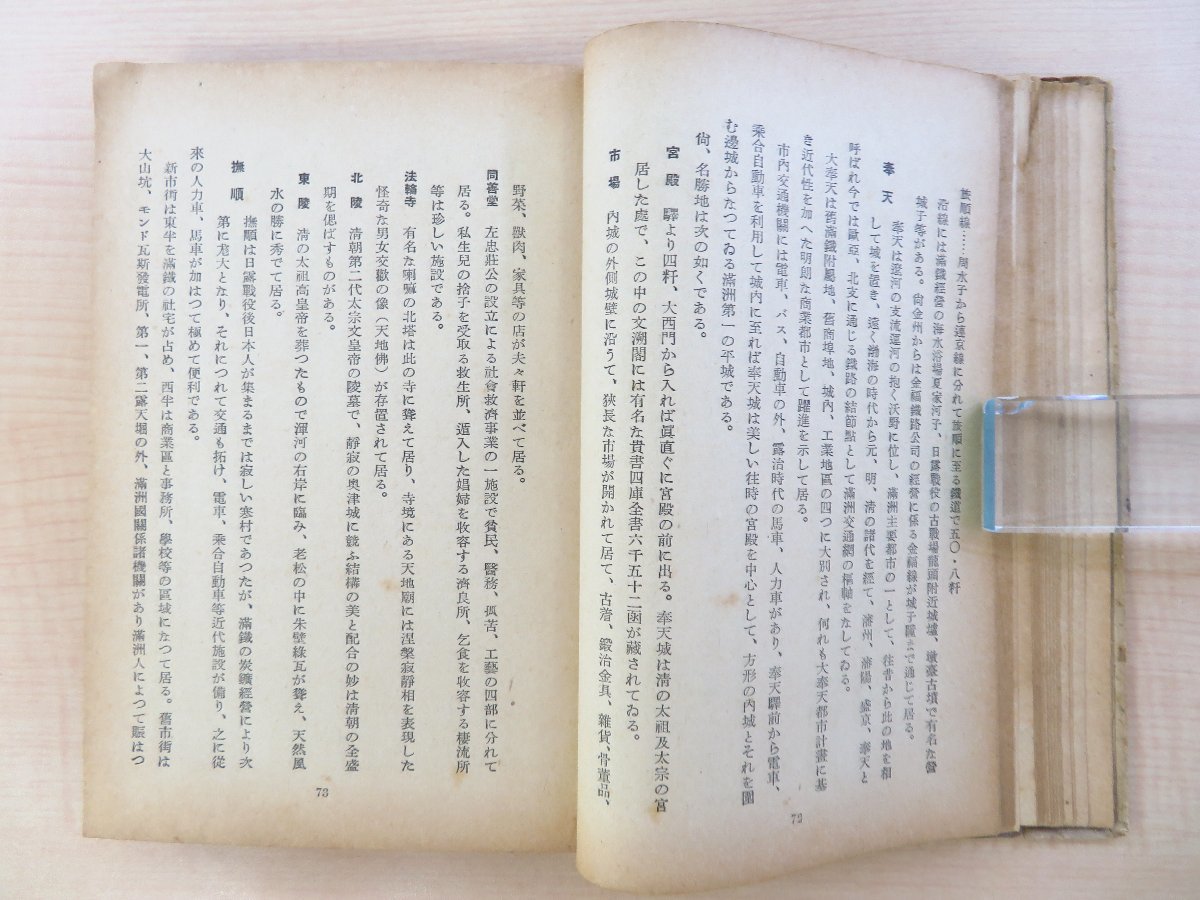 旅順線……周水子から連京線に分れて旅順に至る鐵道で五〇・八粁
沿線には滿鐵經營の海水浴場夏家河子、日露戰役の古戰場龍頭附近城墟、墩臺古墳で有名な營
城子等がある。尙金州からは金福鐵路公司の經營に係る金福線が城子疃まで通じて居る。
奉天 奉天は遼河の支流運河の抱く沃野に位し、滿洲主要都市の一として、往昔から此の地を相
して城を置き、遠く渤海の時代から元、明、淸の諸代を經て、瀋州、瀋陽、盛京、奉天と
呼ばれ今では歐亞、北支に通じる鐵路の結節點として滿洲交通網の樞軸をなしてゐる。
大奉天は舊滿鐵附屬地、舊商埠地、城內、工業地區の四つに大別され、何れも大奉天都市計畫に基
き近代性を加へた明創な商業都市として躍進を示して居る。
市內交通機關には電車、バス、自動車の外、露治時代の馬車、人力車があり、奉天驛前から電車、
乘合自動車を利用して城內に至れば奉天城は美しい往時の宮殿を中心として、方形の內城とそれを圍
む邊城からなつてゐる滿洲第一の平城である。
尙、名勝地は次の如くである。
宮殿 驛より四粁、大西門から入れば眞直ぐに宮殿の前に出る。奉天城は淸の太祖及太宗の宮
居した處で、この中の文溯閣には有名な貴書四庫全書六千五十二函が藏されてゐる。
市場 內城の外側城壁に沿うて、狹長な市場が開かれて居て、古着、鍛治金具、雜貨、骨董品、
72
野菜、獸肉、家具等の店が夫々軒を並べて居る。
同善堂 左忠莊公の設立による社會救濟事業の一施設で貧民、醫務、孤苦、工藝の四部に分れて
居る。私生兒の捨子を受取る救生所、遁入した娼婦を收容する濟良所、乞食を收容する棲流所
等は珍しい施設である。
法輪寺 有名な喇嘛の北塔は此の寺に聳えて居り、寺境にある天地廟には涅槃寂靜相を表現した
怪奇な男女交歡の像（天地佛）が存置されて居る。
北陵 淸朝第二代太宗文皇帝の陵墓で、靜寂の奧津城に競ふ結構の美と配合の妙は淸朝の全盛
期を偲ばすものがある。
東陵 淸の太祖高皇帝を葬つたもので渾河の右岸に臨み、老松の中に朱壁綠瓦が聳え、天然風
水の勝に秀でて居る。
撫順 撫順は日露戰役後日本人が集まるまでは寂しい寒村であつたが、滿鐵の炭鑛經營により次
第に尨大となり、それにつれて交通も拓け、電車、乘合自動車等近代施設が備り、之に從
來の人力車、馬車が加はつて極めて便利である。
新市街は東半を滿鐵の社宅が占め、西半は商業區と事務所、學校等の區域になつて居る。舊市街は
大山坑、モンド瓦斯發電所、第一、第二露天堀の外、滿洲國關係諸機關があり滿洲人によつて賑はつ
73